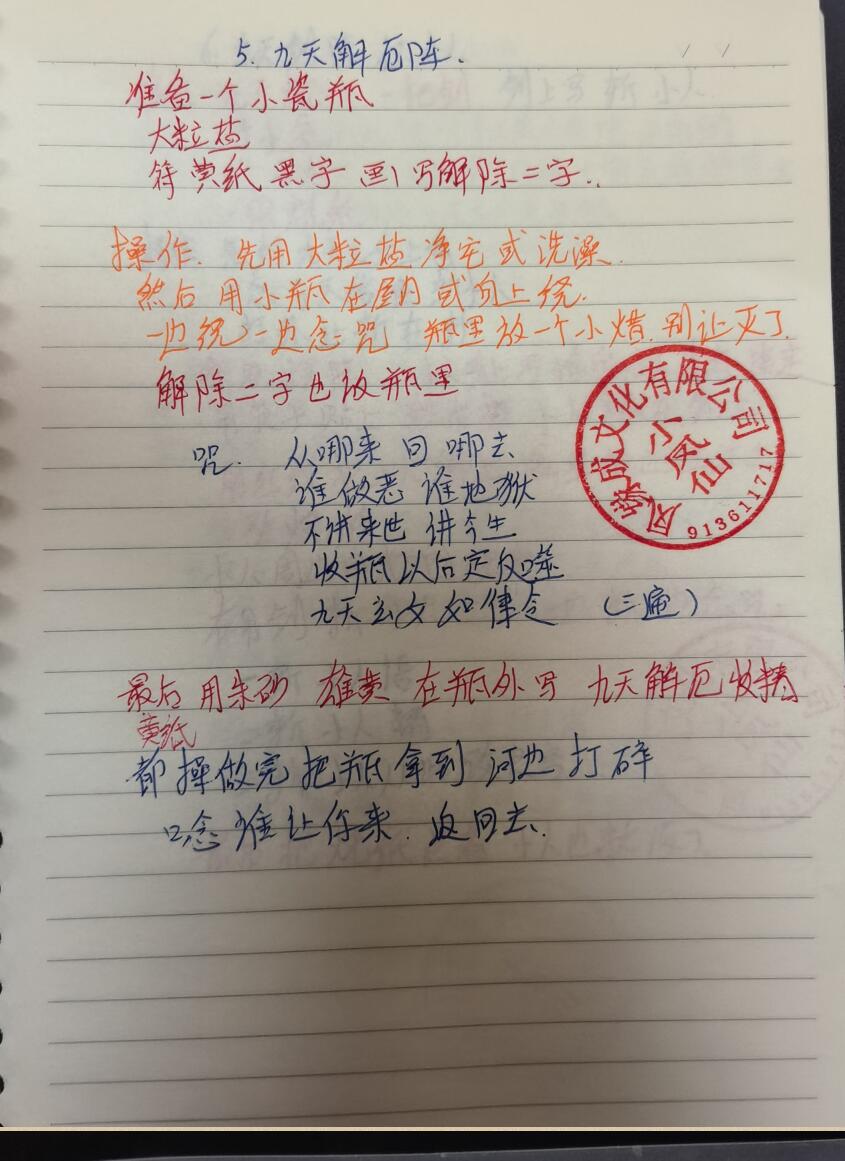 5. 九天解厄阵.
准备一个小瓷瓶
大粒盐
符 黄纸 黑字 画) 写解除二字..
操作. 先用大粒盐净宅或洗澡.
然后用小瓶在屋内或身上绕.
一边绕一边念咒 瓶里放一个小蜡.别让灭了.
解除二字也放瓶里
咒. 从哪来回哪去
谁做恶谁地狱
不讲来世讲今生
收瓶以后定反噬
九天玄女如律令 (三遍)
最后用朱砂 雄黄 在瓶外写 九天解厄收
黄纸
都操做完把瓶拿到河边打碎
口念谁让你来.返回去.
凤 成文化有限公司
小凤仙
913611717